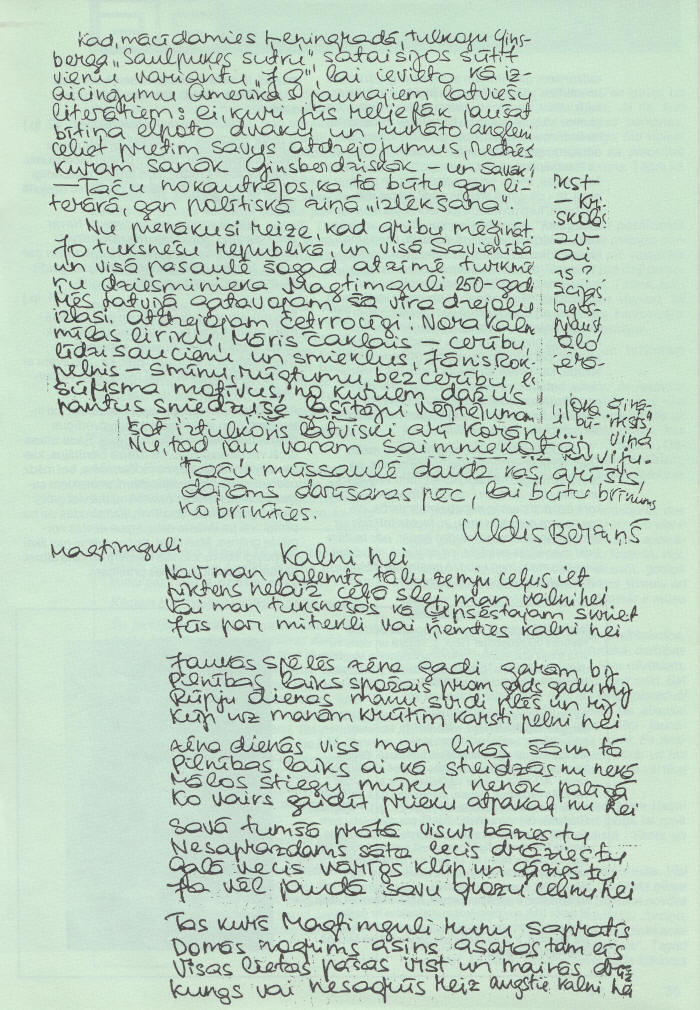 Kad, mācīdamies Ļeņingradā, tulkoju Gins-
berga „Saulpuķes sutru", sataisījos sūtīt
vienu variantu „JG", lai ievieto kā iz-
aicinājumu Amerikas jaunajiem latviešu
literātiem: ei, kuri jūs reljefāk jaušat
bītiņa elpoto dvaku un runāto angleni
celiet pretim savus atdzejojumus, redzēs
kuram sanāk Ginsberdziskāk – un savāk!
— Taču nokautrējos, ka tā būtu gan li-
terārā, gan politiskā ziņā „izlēkšana".
Nu pienākusi reize, kad gribu mēģināt.
Jo tuksnešu republikā, un visā Savienībā
un visā pasaulē šogad atzīmē turkmē
ņu dziesminieka Magtimguli 250-gadi
Mēs Latvijā gatavojam šā vīra dzejoļu
izlasi. Atdzejojam četrrocīgi: Nora Kaln
mīlas liriku, Māris Čaklais – cerību,
līdzi saucienu un smieklus, Jānis Rok-
pelnis – smīnu, rūgtumu, bezcerību, es
sūfisma motīvus, no kuriem dažus
pantus sniedzu še lasītāju vērtējumam
šot iztulkojis latviski arī Korānu...
Nu, tad jau varam saimniekot
Taču mūssaulē daudz kas, arī šis,
darāms darīšanas pēc, lai būtu brīnums
ko brīnīties.
Uldis Bērziņš
kst
– Kri-
skolas
av
ai
as?
ālo
ēro-
Magtimguli
Kalni hei
Nav man nolemts tālu zemju ceļus iet
liktens nelaiž ceļā slej man kalni hei
Vai man tuksnešos kā apsēstajam skriet
Jūs par mitekli vai ņemties kalni hei
Jaukās spēlēs zēna gadi garām bij
Pilnības laiks spožais prom gads gadu mij
Rūpju dienas manu sirdi plēš un rij
Kūp uz manām krūtīm karsti pelni hei
zēna dienās viss man likās šā un tā
Pilnības laiks ai kā steidzās nu nekā
Mālos stiegu mūku nenāk palīgā
Ko vairs gaidīt prieku atpakaļ nu hei
Savā tumšā prātā visur bāzies tu
Nesaprazdams sāta lecis drāzies tu
Galā vecis vārīgs klūp un gāzies tu
Ja vēl jaudā savu grozu celnu hei
Tas kurš Magtimguli runu sapratīs
Domās nogrims asins asaras tam līs
Visas lietas pašas irst un mainās drīz
Kungs vai nesagūs reiz augstie kalni hei